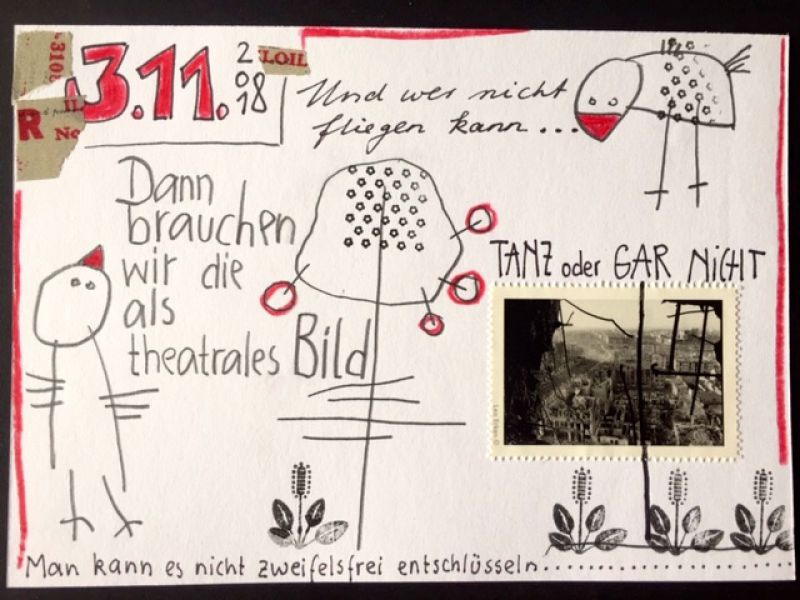 3.11.
2018
LOIL
R
No
Und wer nicht
fliegen kann...
Dann
brauchen
wir die
als
theatrales Bild
TANZ oder GAR NiCHT
Man kann es nicht zweifelsfrei entschlüsseln..............................